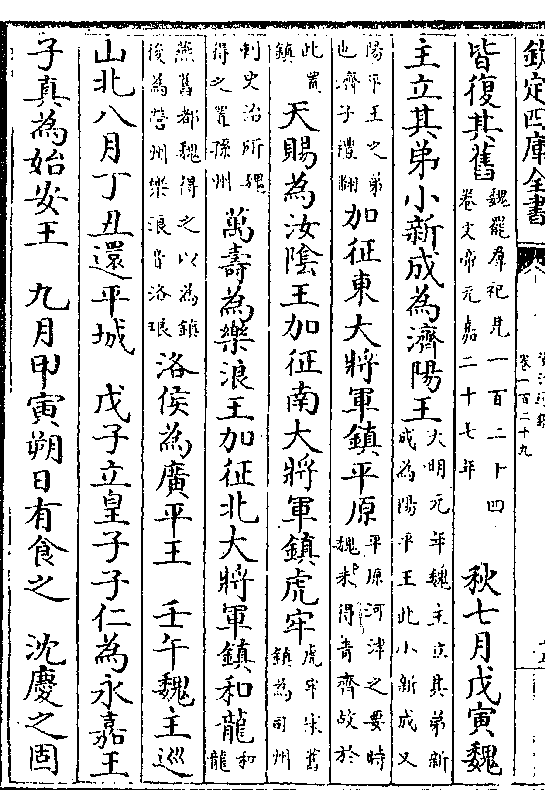 欽定四庫全書
卷一百二十九
皆復其舊
魏罷羣祀見一百二十四
卷文帝元嘉二十七年
秋七月戊寅魏
主立其弟小新成為濟陽王
大明元年魏主立其弟新
成為陽平王此小新成又
陽平王之弟
也濟子禮翻
加征東大將軍鎮平原
平原河津之要時
魏未得青齊故於
此置
鎮
天賜為汝陰王加征南大將軍鎮虎牢
虎牢宋舊
鎮為司州
刺史治所魏
得之置豫州
萬壽為樂浪王加征北大將軍鎮和龍
和
龍
燕舊都魏得之以為鎮
後為營州樂浪音洛琅
洛侯為廣平王 壬午魏主巡
山北八月丁丑還平城 戊子立皇子子仁為永嘉王
子真為始安王 九月甲寅朔日有食之 沈慶之固